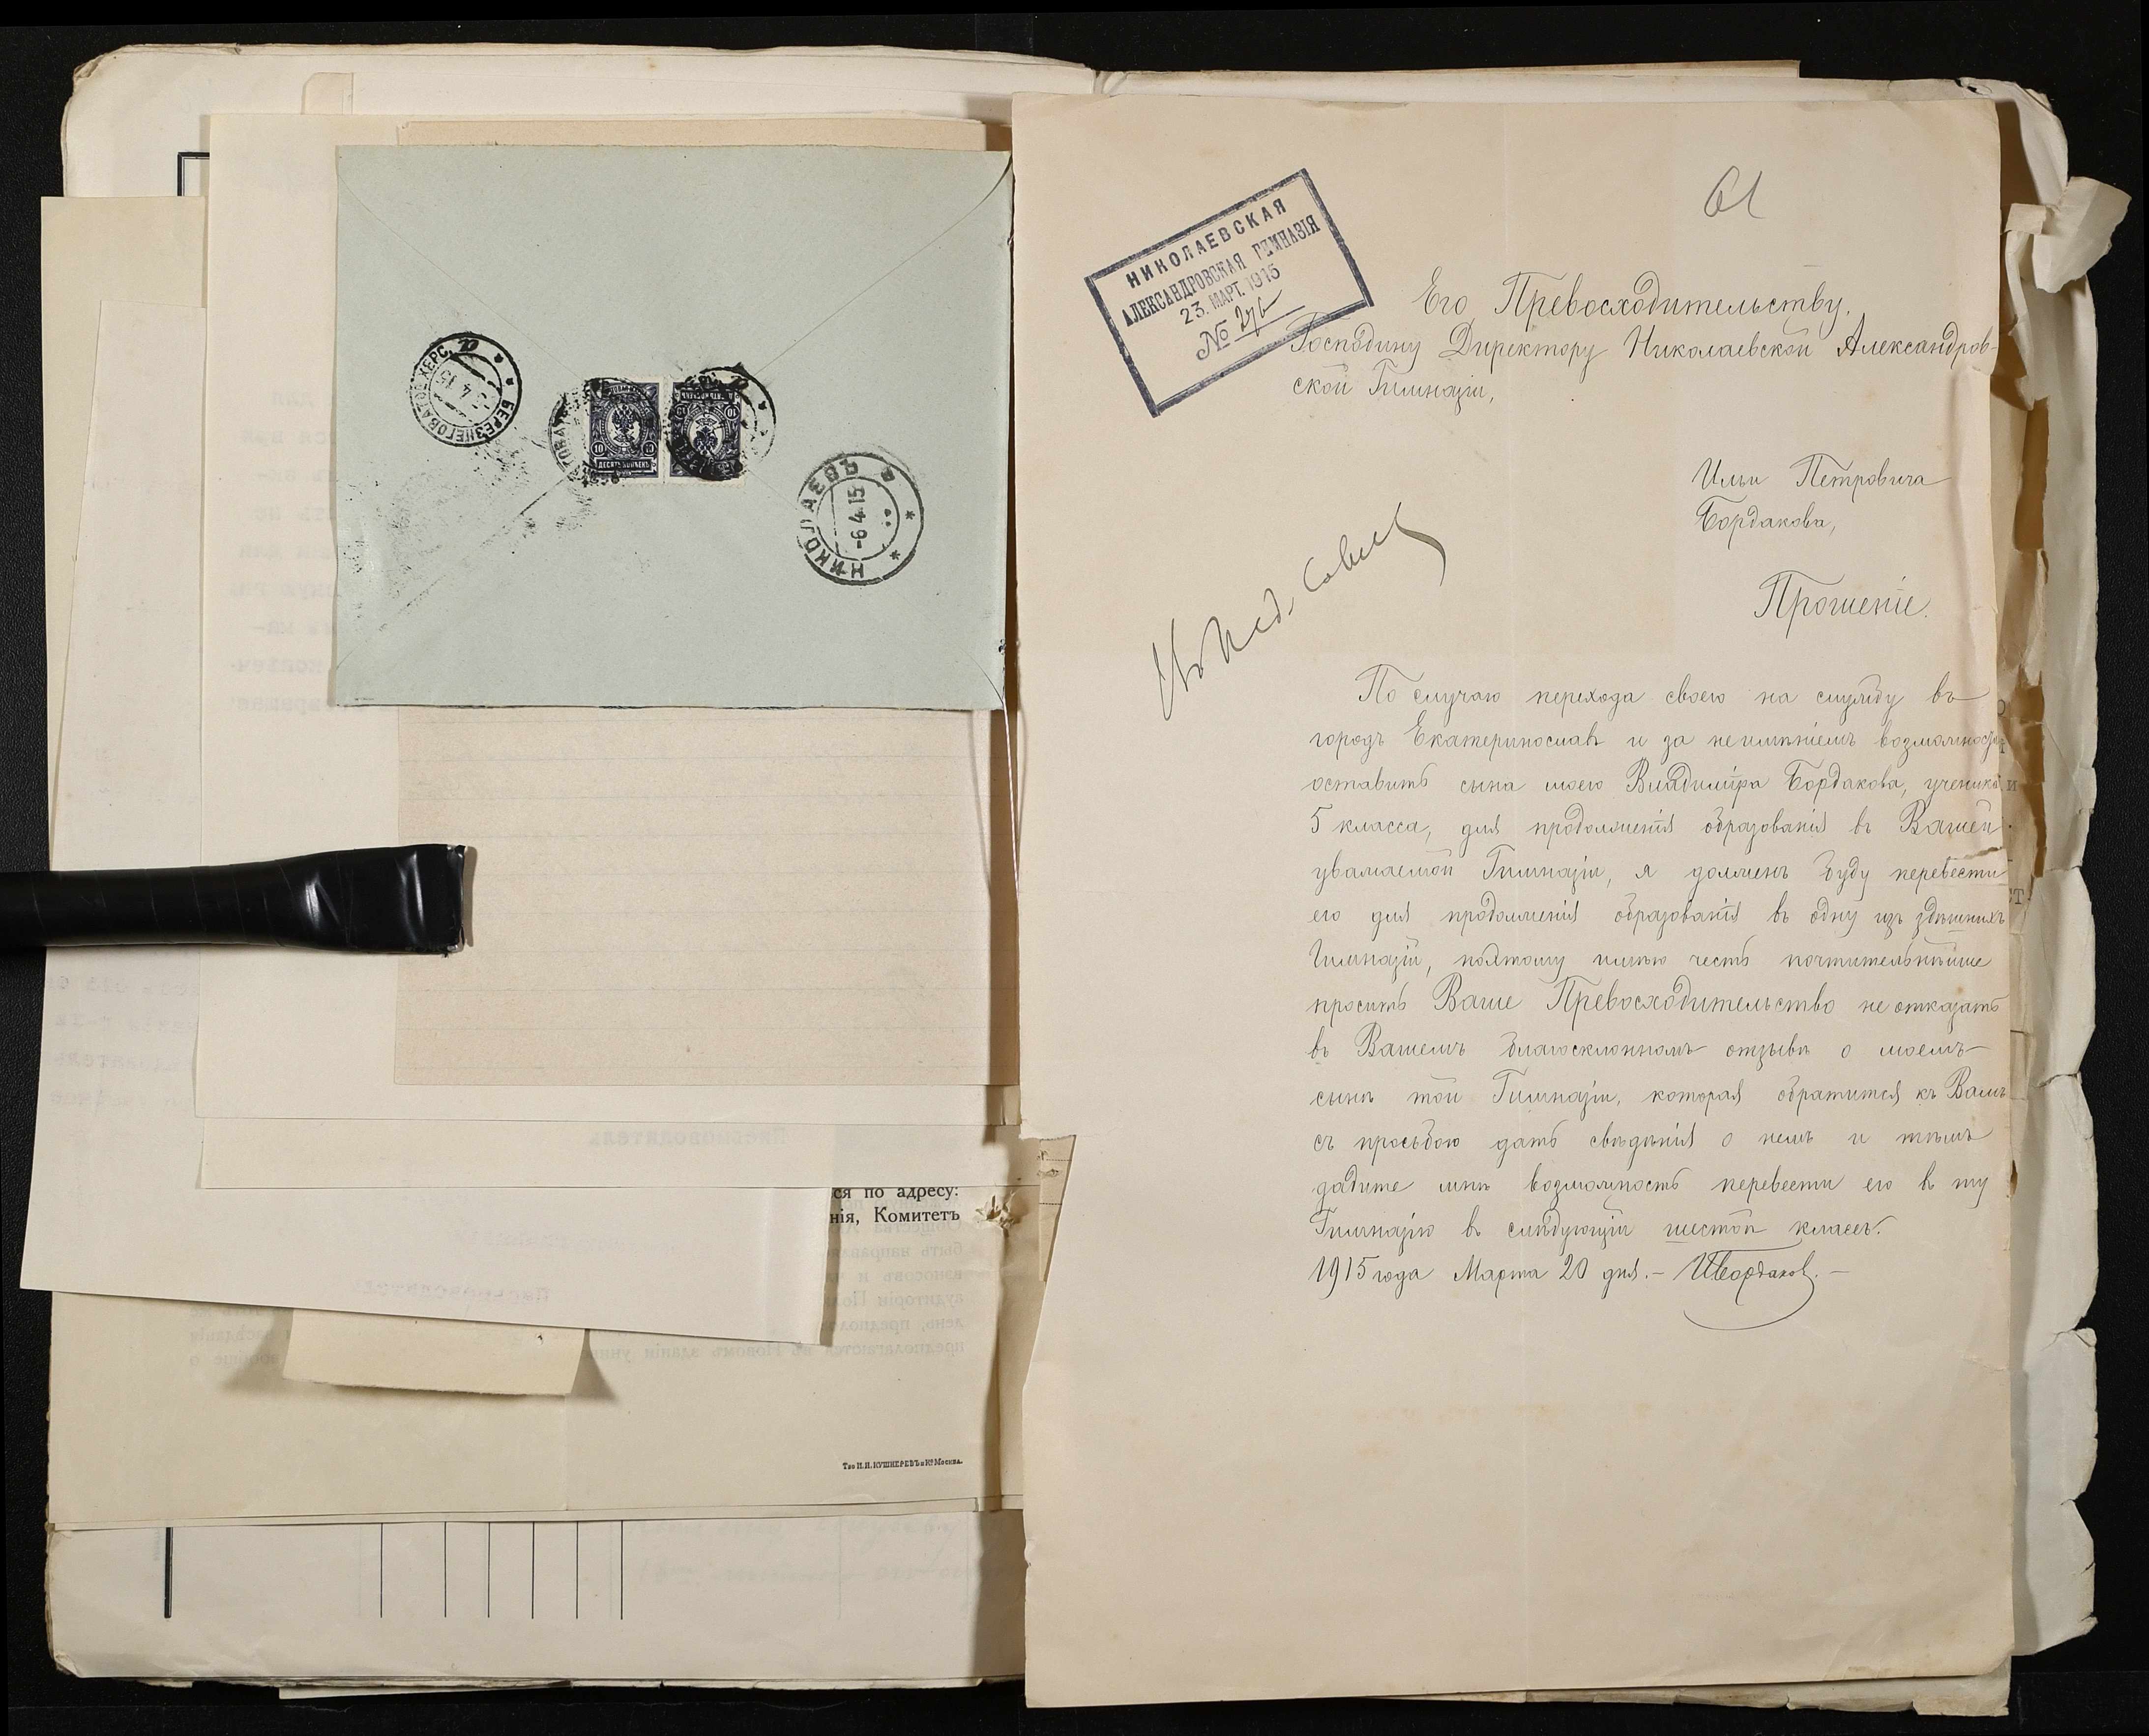 БЕРЕЗНЕГОВАТОЕ ХЕРС.
4 15
ДЕСЯТЬ КОПѢЕКЪ
10
10
НИКОЛАЕВЪ
-6 4 15
ся по адресу:
нія, Комитетъ
Т-во И. Н. КУШНЕРЕВЪ и Ко Москва.
61
НИКОЛАЕВСКАЯ
АЛЕКСАНДРОВСКАЯ ГИМНАЗІЯ
23. МАРТ. 1915
№ 276
Его Превосходительству,
Господину Директору Николаевской Александров-
ской Гимназіи,
Ильи Петровича
Бордакова,
Въ Пед. Совѣт
Прошеніе.
По случаю перехода своего на службу въ
городъ Екатеринославъ и за неимѣніемъ возможности
оставить сына моего Владиміра Бордакова, ученика
5 класса, для продолженія образованія въ Вашей
уважаемой Гимназіи, я долженъ буду перевести
его для продолженія образованія въ одну изъ здѣшнихъ
Гимназій, поэтому имѣю честь почтительнѣйше
просить Ваше Превосходительство не отказать
въ Вашемъ благосклонномъ отзывѣ о моемъ
сынѣ той Гимназіи, которая обратится къ Вамъ
съ просьбою дать свѣдѣнія о немъ и тѣмъ
дадите мнѣ возможность перевести его въ ту
Гимназію въ слѣдующій шестой классъ.
1915 года Марта 20 дня. – ИБордаковъ. –